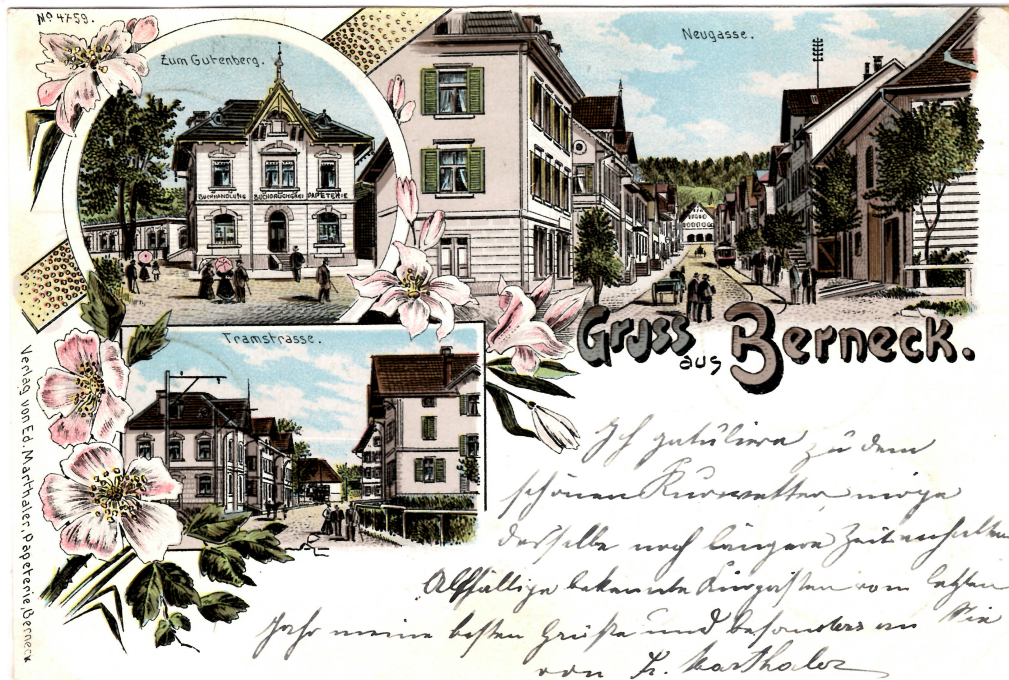 No 4759.
Zum Gutenberg.
BUCHHANDLUNG BUCHDRUCKEREI PAPETERIE
Neugasse.
Tramstrasse.
Gruss aus Berneck.
Verlag von Ed. Marthaler, Papeterie, Berneck
Ich gratuliere zu dem
schönen Kurwetter möge
dasselbe noch längere Zeit anhalten
Allfällige bekannte Kurgästen vom letzten
Jahr meine besten Grüße und besonders an Sie
von E. Marthaler